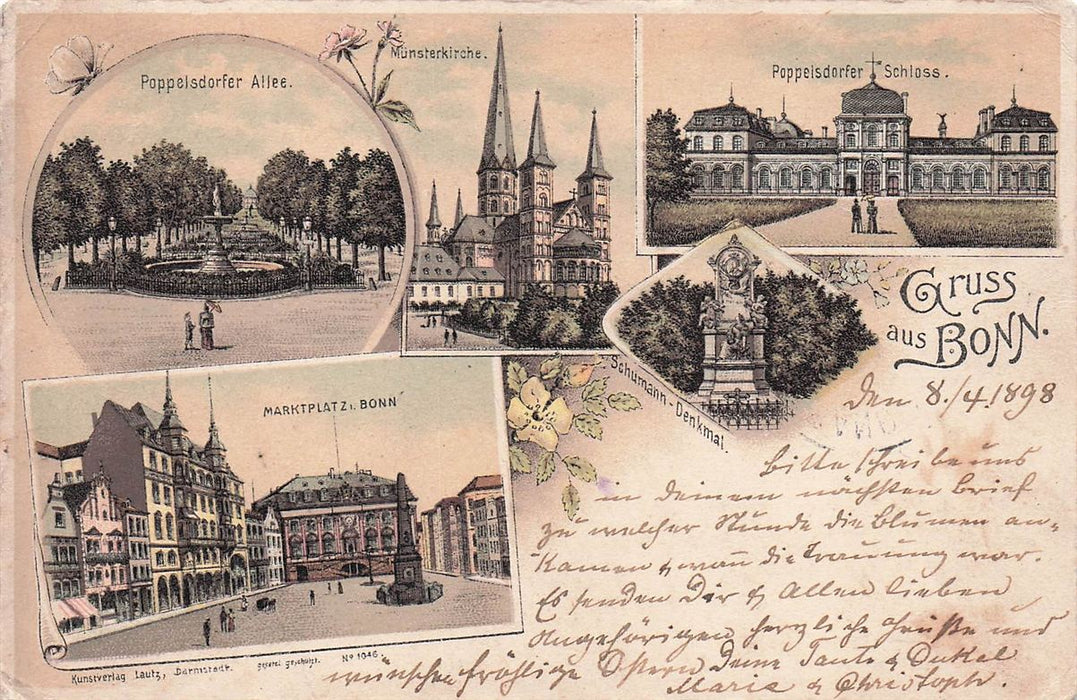 Poppelsdorfer Allee.
Münsterkirche.
Poppelsdorfer Schloss.
Gruss
aus BONN.
Schumann-Denkmal.
MARKTPLATZ i. BONN
den 8./4. 1898
bitte schreibe uns
in deinem nächsten Brief
zu welcher Stunde die Blumen an-
kamen & wan̄ die Trauung war.
Es senden Dir & Allen lieben
Angehörigen herzliche Grüße und
wünschen fröhliche Ostern Deine Tante &
Marie & Christoph.
Kunstverlag Lautz, Darmstadt. gesetzl. geschützt. No 1046.